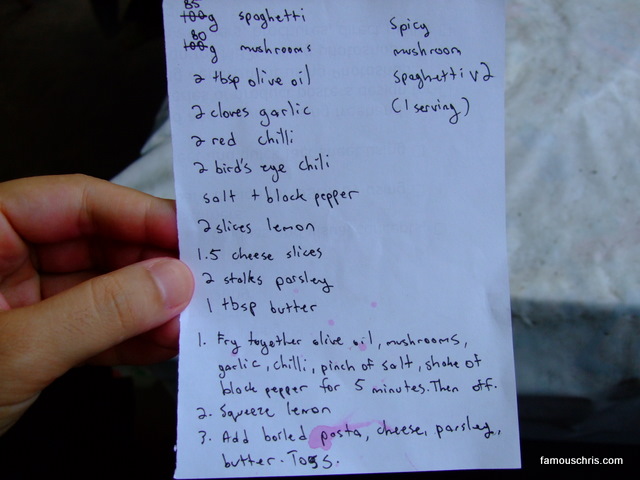 85
100g spaghetti
80
100g mushrooms
2 tbsp olive oil
2 cloves garlic
2 red chilli
2 bird's eye chili
salt + black pepper
2 slices lemon
1.5 cheese slices
2 stalks parsley
1 tbsp butter
Spicy
mushroom
spaghetti v2
(1 serving)
1. Fry together olive oil, mushrooms,
garlic, chilli, pinch of salt, shake of
black pepper for 5 minutes. Then off.
2. Squeeze lemon
3. Add boiled pasta, cheese, parsley,
butter. Toss.
famouschris.com